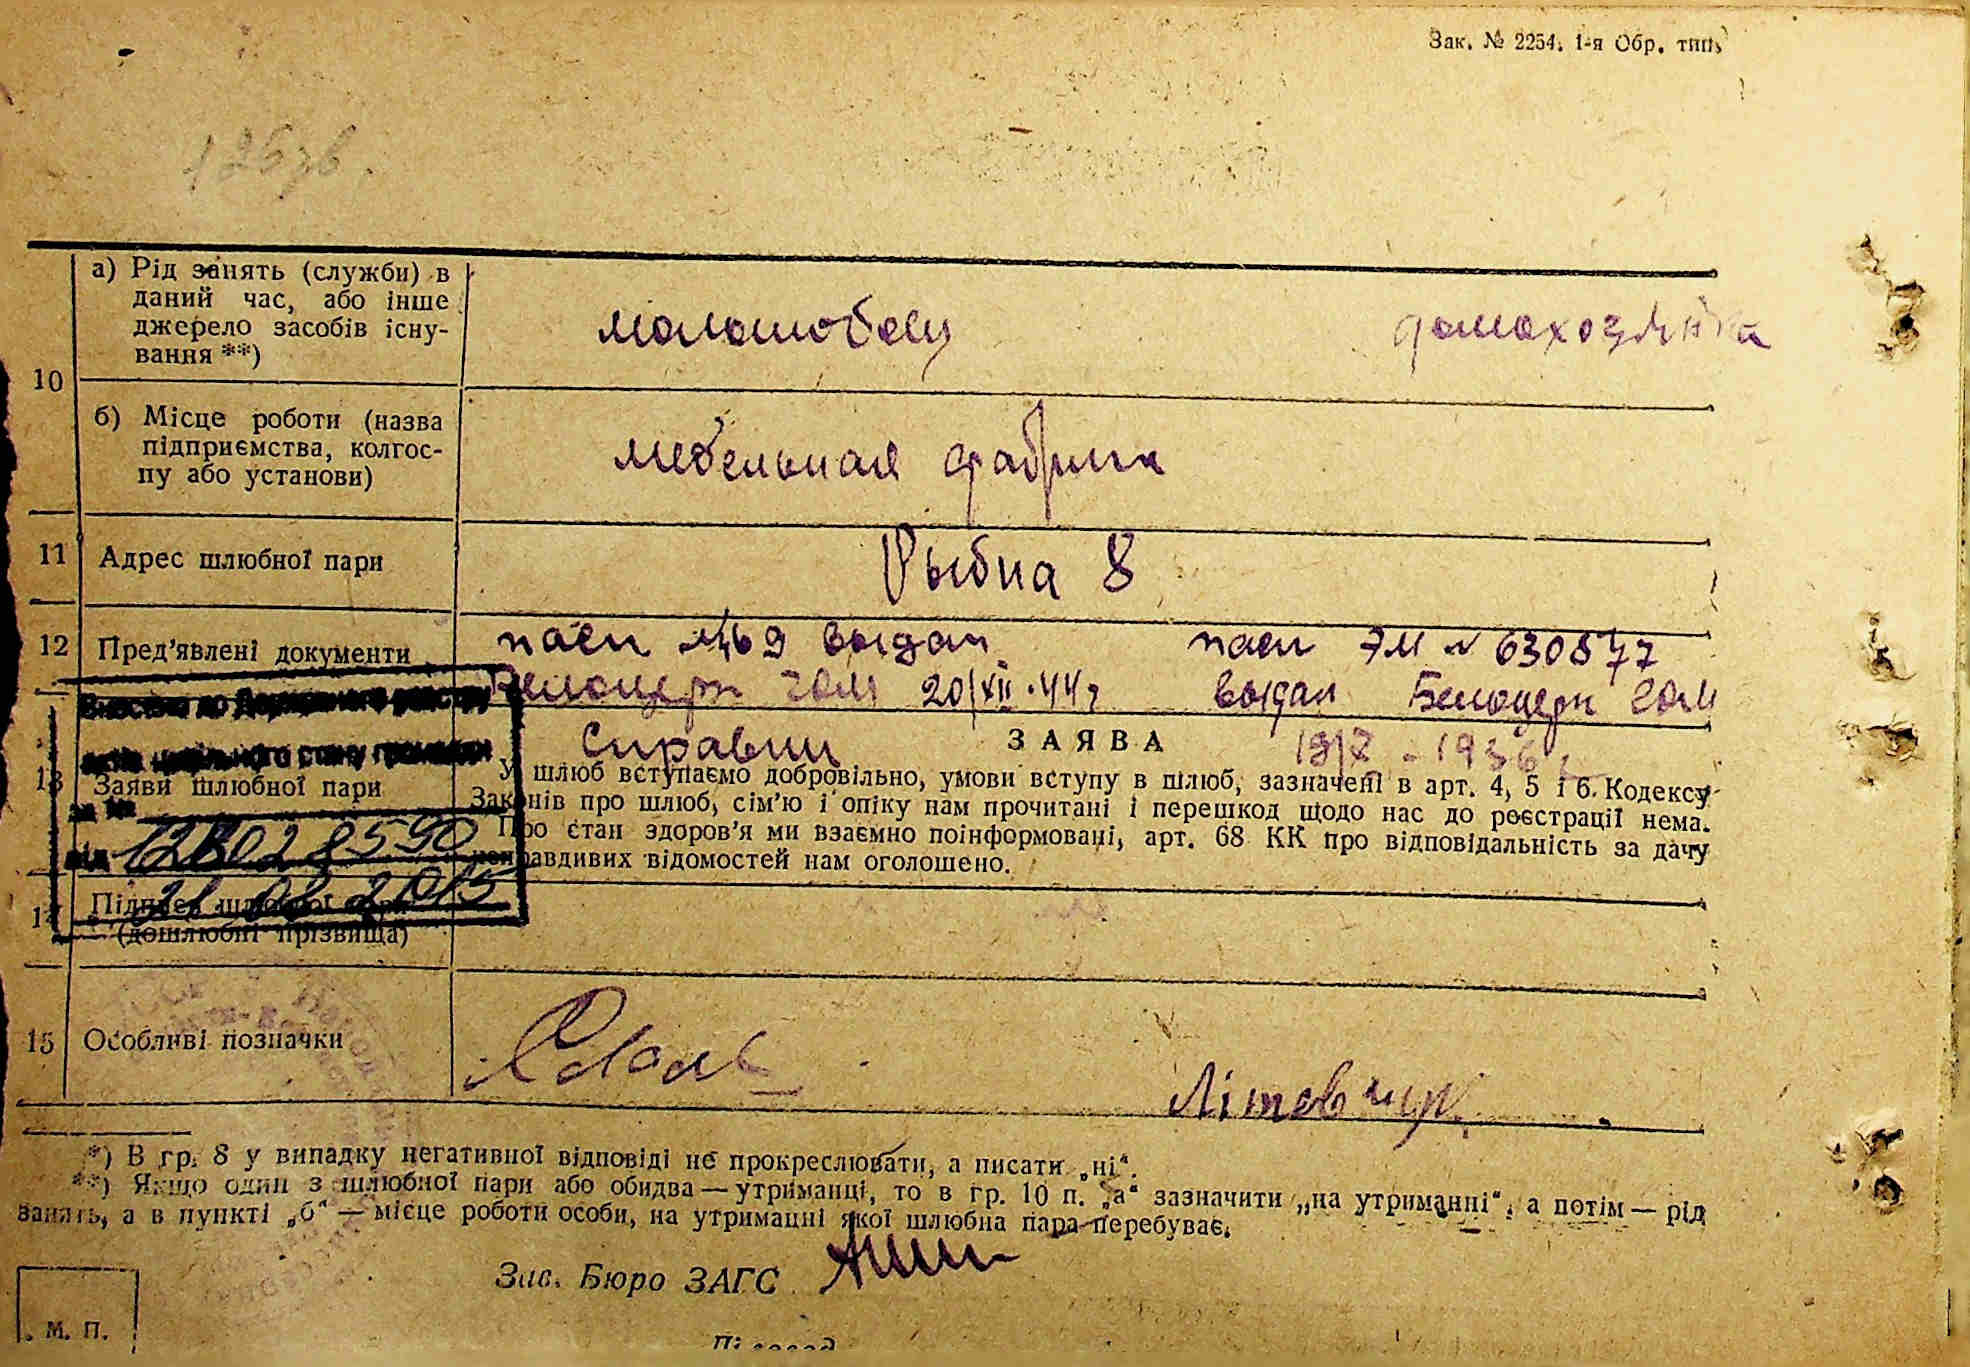 Зак. № 2254. 1-я Обр. тип.
10
а) Рід занять (служби) в
даний час, або інше
джерело засобів існу-
вання **)
молотобоец
домохозяйка
б) Місце роботи (назва
підприємства, колгос-
пу або установи)
мебельная фабрик
11
Адрес шлюбної пари
Рыбна 8
12
Пред'явлені документи
пасп выдан
Белоцерк ГОМ 20/XII-44г
пасп ЭМ № 630577
выдан Белоцерк ГОМ
Внесено до Державного реєстру
актів цивільного стану громадян
за №
від
2015
13
Заяви шлюбної пари
ЗАЯВА
У шлюб вступаємо добровільно, умови вступу в шлюб, зазначені в арт. 4, 5 і 6 Кодексу
Законів про шлюб, сім'ю і опіку нам прочитані і перешкод щодо нас до реєстрації нема.
Про стан здоров'я ми взаємно поінформовані, арт. 68 КК про відповідальність за дачу
неправдивих відомостей нам оголошено.
14
Підписи шлюбної пари
(дошлюбні прізвища)
15
Особливі позначки
Літовчук
*) В гр. 8 у випадку негативної відповіді не прокреслювати, а писати „ні“.
**) Якщо один з шлюбної пари або обидва — утриманці, то в гр. 10 п. „а“ зазначити „на утриманні“, а потім — рід
занять, а в пункті „б“ — місце роботи особи, на утриманні якої шлюбна пара перебуває.
Зав. Бюро ЗАГС
М. П.